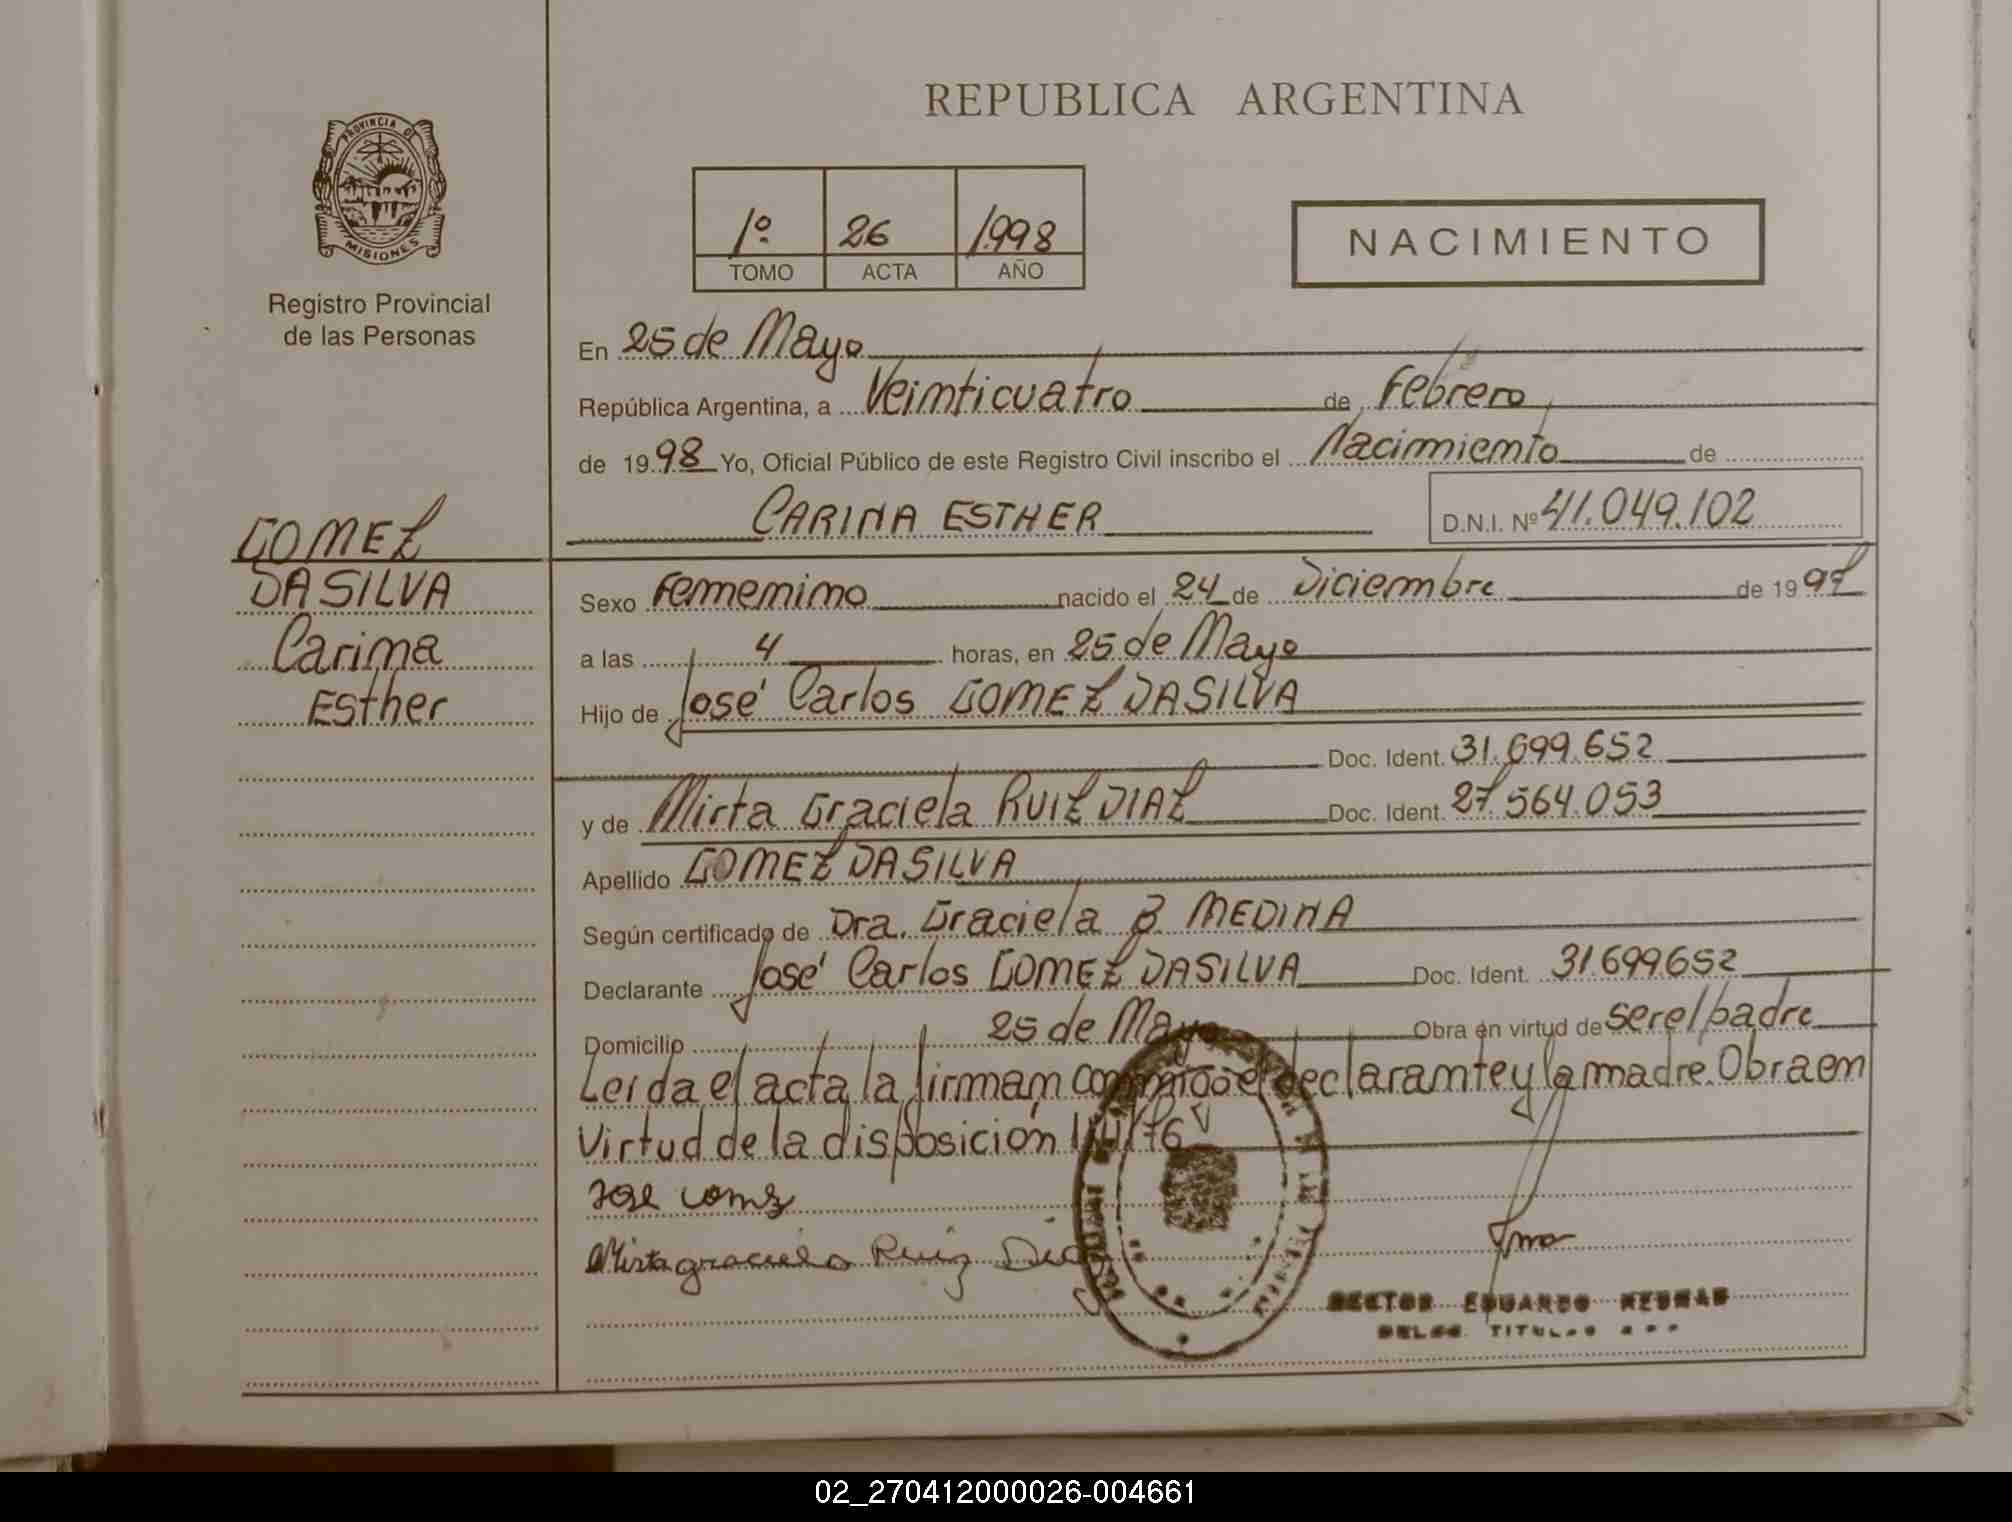 REPUBLICA ARGENTINA
PROVINCIA DE
MISIONES
Registro Provincial
de las Personas
1º 26 1998
TOMO ACTA AÑO
NACIMIENTO
En 25 de Mayo
República Argentina, a Veinticuatro de Febrero
de 1998 Yo, Oficial Público de este Registro Civil inscribo el Nacimiento de
CARINA ESTHER D.N.I. Nº 41.049.102
GOMEZ
DASILVA
Carina
Esther
Sexo Femenino nacido el 24 de Diciembre de 1997
a las 4 horas, en 25 de Mayo
Hijo de José Carlos GOMEZ DASILVA
Doc. Ident. 31.699.652
y de Mirta Graciela RUIZ DIAZ Doc. Ident. 27.564.053
Apellido GOMEZ DASILVA
Según certificado de Dra. Graciela B. MEDINA
Declarante José Carlos GOMEZ DASILVA Doc. Ident. 31.699652
Domicilio 25 de Mayo Obra en virtud de ser el padre
Leída el acta la firman conmigo el declarante y la madre. Obra en
Virtud de la disposición
Jose Gomez
Mirta graciela Ruiz Diaz
HECTOR EDUARDO
TITULAR
02_270412000026-004661